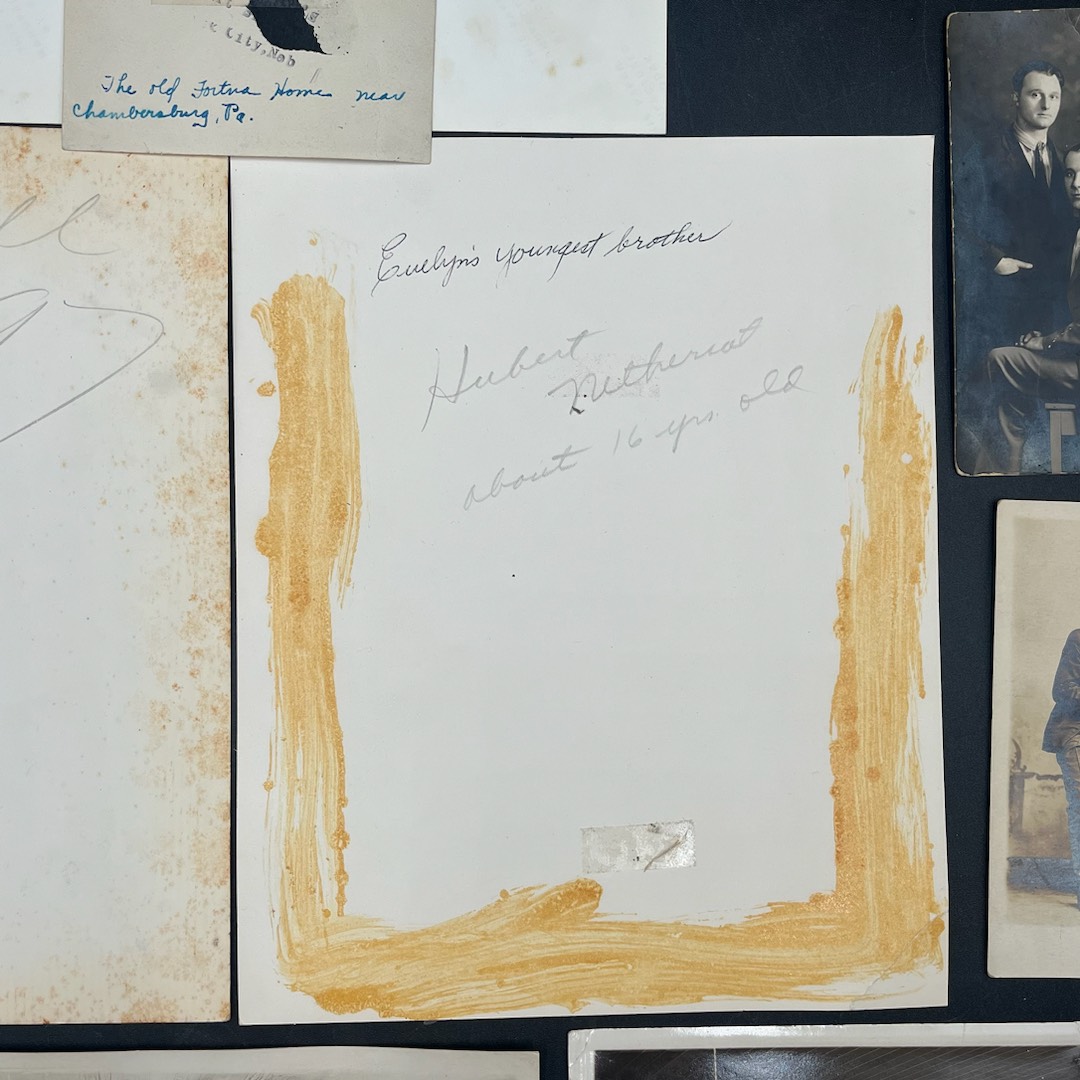 City, Neb
The old Fortna Home near
Chambersburg, Pa.
Evelyn's youngest brother
Hubert
about 16 yrs. old